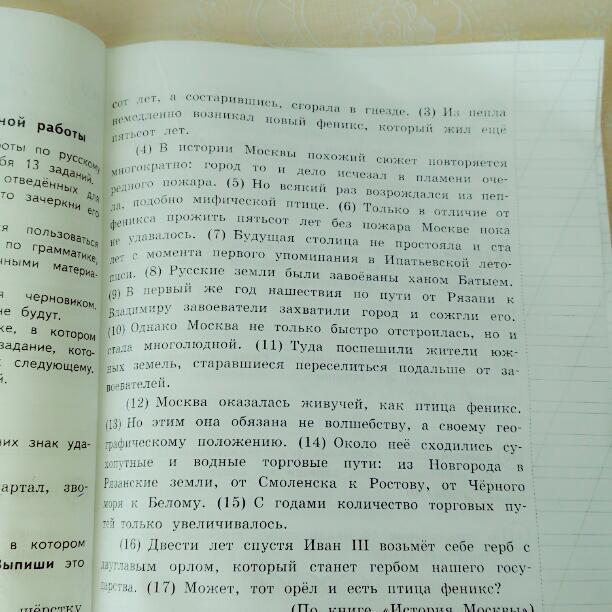 ной работы
оты по русскому
бя 13 заданий.
отведённых для
то зачеркни его
я пользоваться
по грамматике,
чными материа-
я черновиком.
не будут.
ке, в котором
задание, кото-
к следующему.
й.
них знак уда-
артал, зво-
в котором
Выпиши это
шёрстку
сот лет, а состарившись, сгорала в гнезде. (3) Из пепла
немедленно возникал новый феникс, который жил ещё
пятьсот лет.
(4) В истории Москвы похожий сюжет повторяется
многократно: город то и дело исчезал в пламени оче-
редного пожара. (5) Но всякий раз возрождался из пеп-
ла, подобно мифической птице. (6) Только в отличие от
феникса прожить пятьсот лет без пожара Москве пока
не удавалось. (7) Будущая столица не простояла и ста
лет с момента первого упоминания в Ипатьевской лето-
писи. (8) Русские земли были завоёваны ханом Батыем.
(9) В первый же год нашествия по пути от Рязани к
Владимиру завоеватели захватили город и сожгли его.
(10) Однако Москва не только быстро отстроилась, но и
стала многолюдной. (11) Туда поспешили жители юж-
ных земель, старавшиеся переселиться подальше от за-
воевателей.
(12) Москва оказалась живучей, как птица феникс.
(13) Но этим она обязана не волшебству, а своему гео-
графическому положению. (14) Около неё сходились су-
хопутные и водные торговые пути: из Новгорода в
Рязанские земли, от Смоленска к Ростову, от Чёрного
моря к Белому. (15) С годами количество торговых пу-
тей только увеличивалось.
(16) Двести лет спустя Иван III возьмёт себе герб с
двуглавым орлом, который станет гербом нашего госу-
дарства. (17) Может, тот орёл и есть птица феникс?
(По книге «История Москвы»)